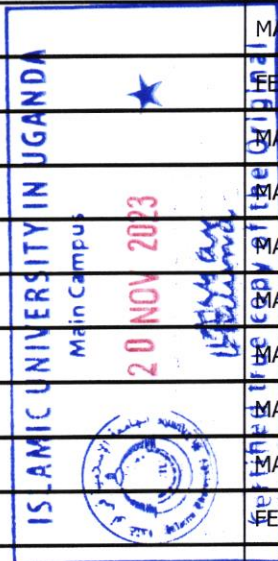 ISLAMIC UNIVERSITY IN UGANDA
Main Campus
20 NOV 2023
Certified true copy of the Original
MA
FE
MA
MA
MA
MA
MA
MA
MA
FE